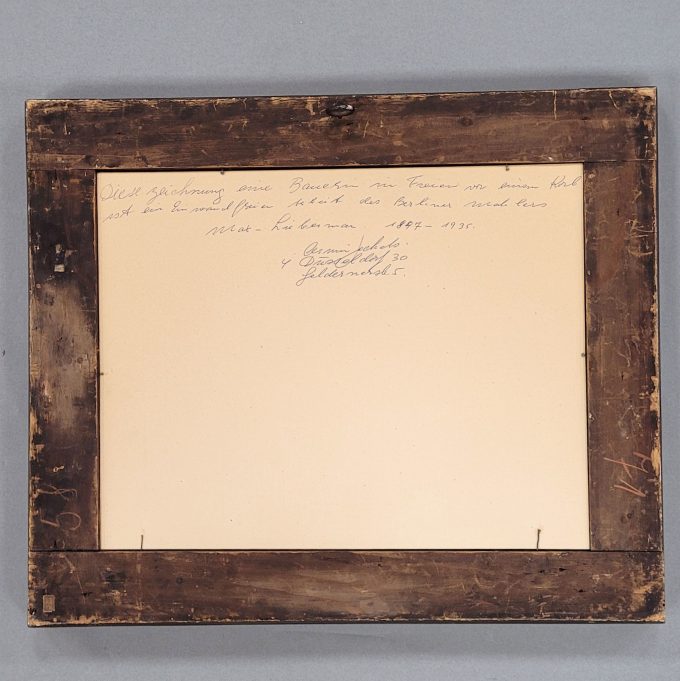 Diese Zeichnung eine Bauern in Freien vor einem Korb
ist ein Einwandfreien Arbeit des Berliner Malers
Max - Lieberman 1847 - 1935.
Armin
4 Düsseldorf 30
Geldernerstr 5.
58